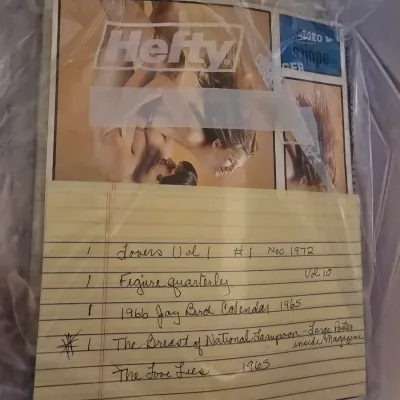 Hefty
1 Lovers Vol 1 #1 Nov 1972
1 Figure quarterly Vol 10
1 1966 Jay Bird Calendar 1965
1 The Breast of National Lampoon - Large Poster
inside Magazine
The Love Lies 1965